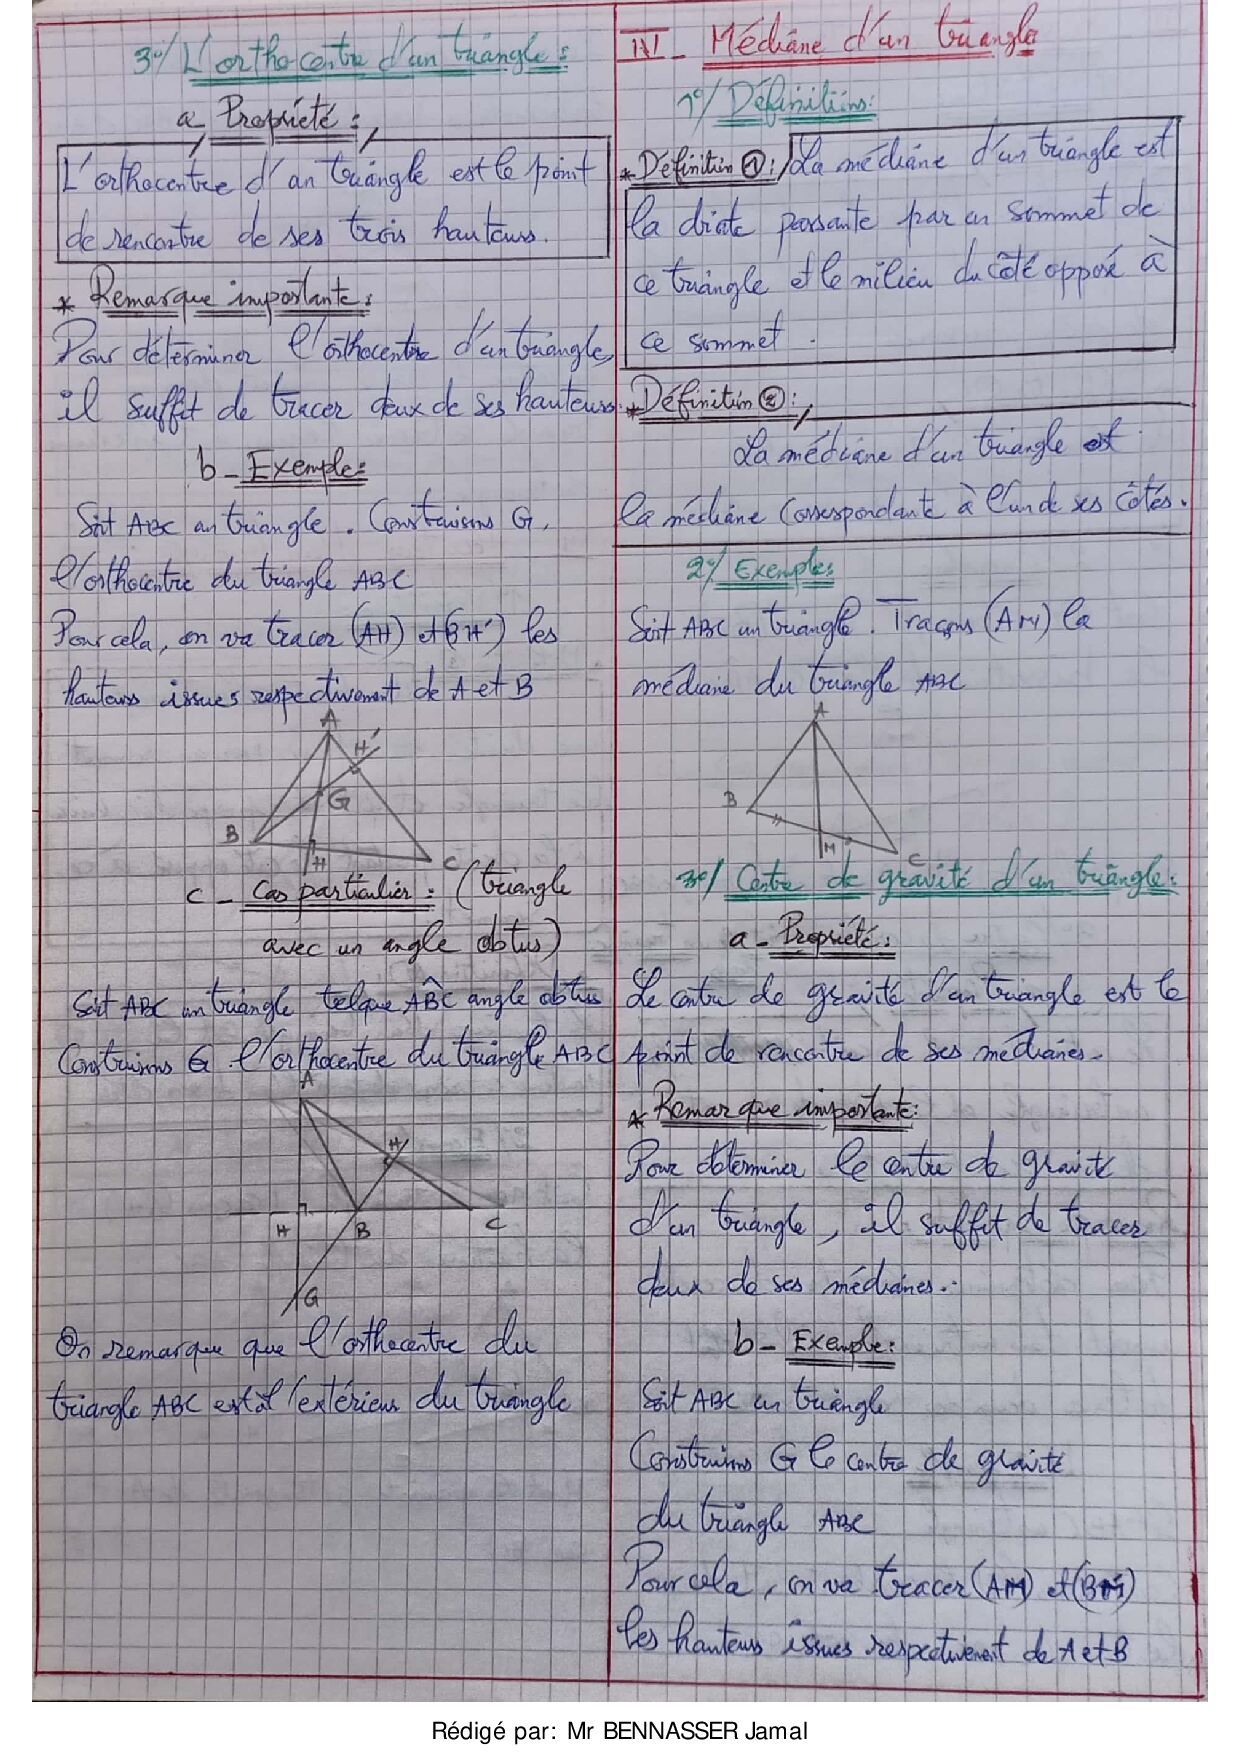 3°/ L'orthocentre d'un triangle :
a, Propriété :
L'orthocentre d'un triangle est le point
de rencontre de ses trois hauteurs.
* Remarque importante :
Pour déterminer l'orthocentre d'un triangle,
il suffit de tracer deux de ses hauteurs.
b - Exemple :
Soit ABC un triangle. Construisons G,
l'orthocentre du triangle ABC
Pour cela, on va tracer (AH) et (BH') les
hauteurs issues respectivement de A et B
A
H'
G
B
H
C
c - Cas particulier : (triangle
avec un angle obtus)
Soit ABC un triangle tel que ABC angle obtus
Construisons G l'orthocentre du triangle ABC
A
H'
H
B
C
G
On remarque que l'orthocentre du
triangle ABC est à l'extérieur du triangle
IV - Médiane d'un triangle
1°/ Définitions :
* Définition ① : La médiane d'un triangle est
la droite passante par un sommet de
ce triangle et le milieu du côté opposé à
ce sommet.
* Définition ② :
La médiane d'un triangle est
la médiane correspondante à l'un de ses côtés.
2°/ Exemple :
Soit ABC un triangle. Traçons (AM) la
médiane du triangle ABC
A
B
M
C
3°/ Centre de gravité d'un triangle :
a - Propriété :
Le centre de gravité d'un triangle est le
point de rencontre de ses médianes.
* Remarque importante :
Pour déterminer le centre de gravité
d'un triangle, il suffit de tracer
deux de ses médianes.
b - Exemple :
Soit ABC un triangle
Construisons G le centre de gravité
du triangle ABC
Pour cela, on va tracer (AM) et (BM')
les hauteurs issues respectivement de A et B
Rédigé par: Mr BENNASSER Jamal